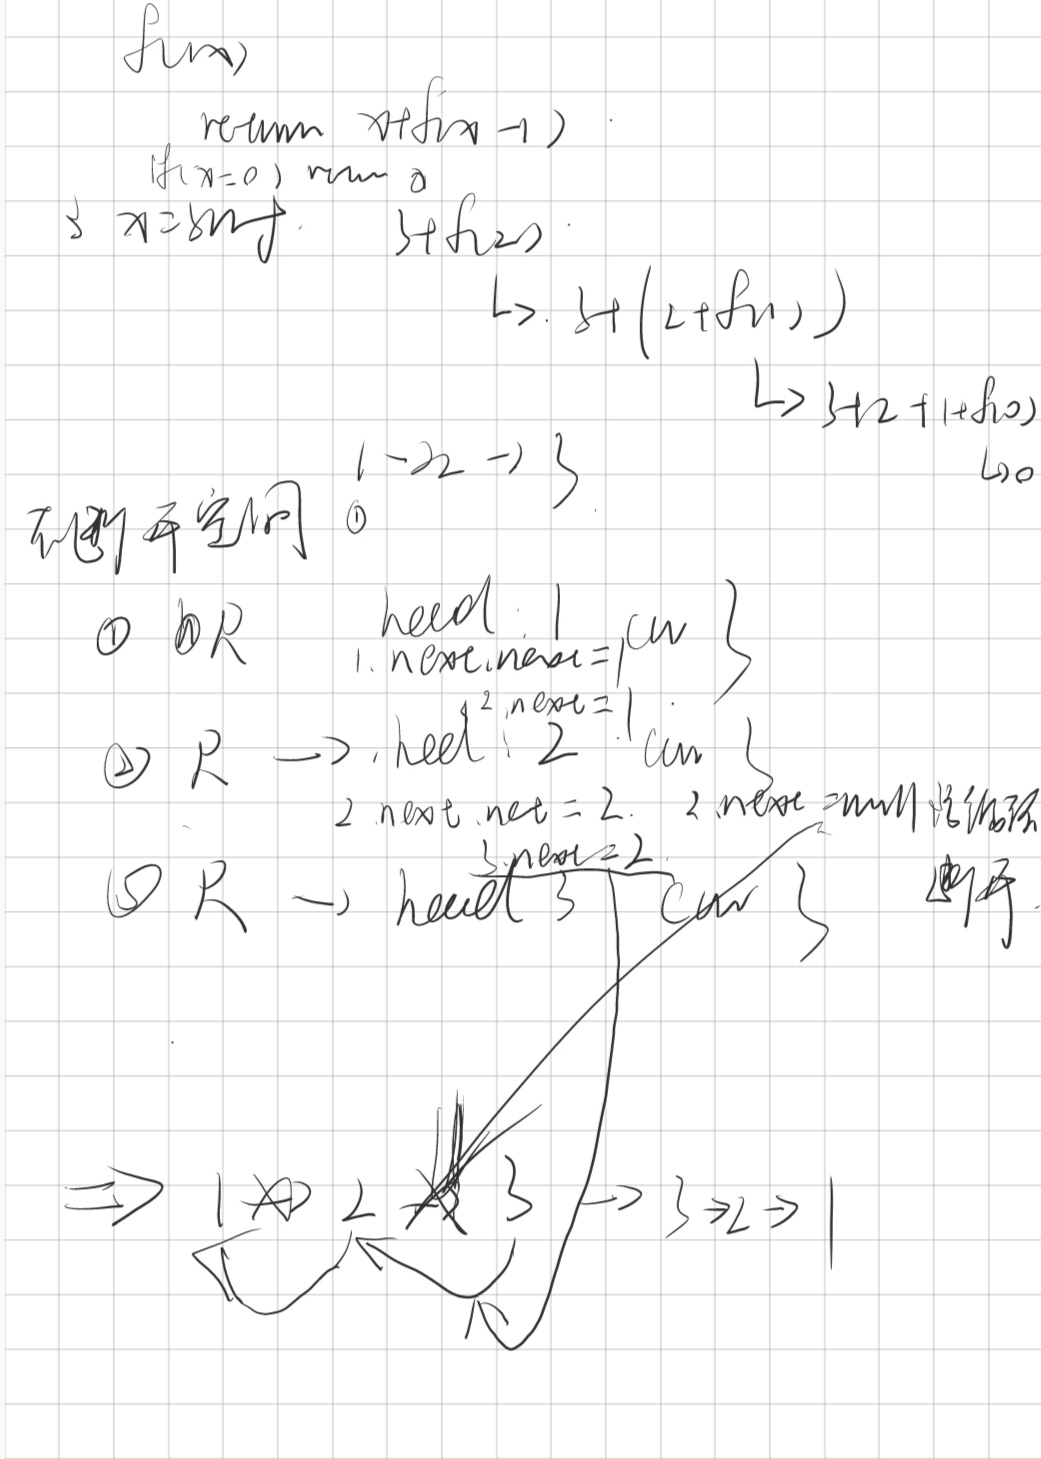 f(x)
return x+f(x-1)
if(x=0) return 0
3 x=3时 3+f(2)
↳ 3+(2+f(1))
↳ 3+2+1+f(0)
↳0
1->2->3
不断开空间 ①
① R head: 1 cur }
1.next.next=1
2.next=1
② R -> head: 2 cur }
2.next.next=2. 2.next=null 将循环
3.next=2 断开.
③ R -> head 3 cur }
=> 1 -> 2 -> 3 -> 3->2->1